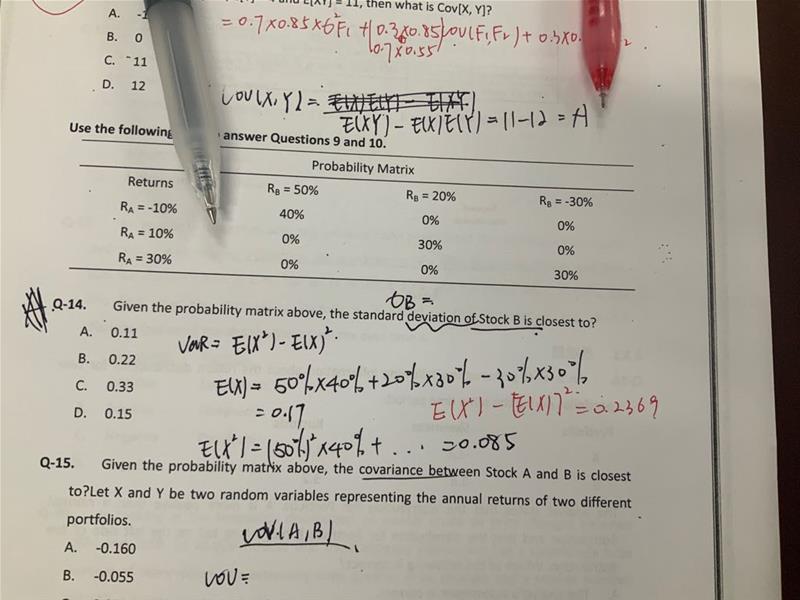 E[XY] = 11, then what is Cov[X, Y]?
A. -1
= 0.7×0.85×б²F₁ + (0.3×0.85) COV(F₁,F₂) + 0.3×0.
0.7×0.55
B. 0
C. 11
D. 12
COV(X,Y) = E(X)E(Y) - E(XY)
E(XY) - E(X)E(Y) = 11-12 = A
Use the following answer Questions 9 and 10.
Probability Matrix
Returns R_B = 50% R_B = 20% R_B = -30%
R_A = -10% 40% 0% 0%
R_A = 10% 0% 30% 0%
R_A = 30% 0% 0% 30%
бB =
Q-14. Given the probability matrix above, the standard deviation of Stock B is closest to?
A. 0.11
VaR = E(X²) - E(X)².
B. 0.22
C. 0.33
E(X) = 50%×40% + 20%×30% - 30%×30%
D. 0.15
= 0.17
E(X²) - [E(X)]² = 0.2369
E(X²) = (50%)²×40% + ... = 0.085
Q-15. Given the probability matrix above, the covariance between Stock A and B is closest
to?Let X and Y be two random variables representing the annual returns of two different
portfolios.
COV(A,B)
A. -0.160
B. -0.055
COV =